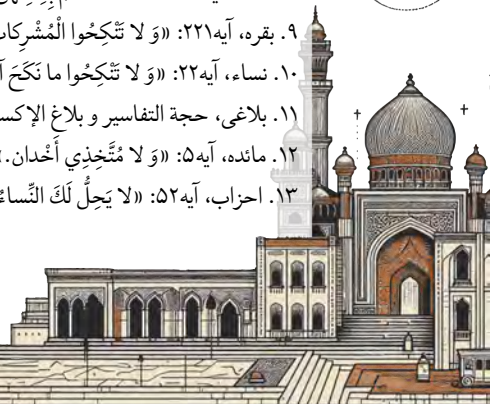 ۹. بقره، آیه۲۲۱: «وَ لا تَنْكِحُوا الْمُشْرِكاتِ
۱۰. نساء، آیه۲۲: «وَ لا تَنْكِحُوا ما نَكَحَ
۱۱. بلاغی، حجة التفاسیر و بلاغ
۱۲. مائده، آیه۵: «وَ لا مُتَّخِذِي أَخْدان.»
۱۳. احزاب، آیه۵۲: «لا يَحِلُّ لَكَ النِّساءُ